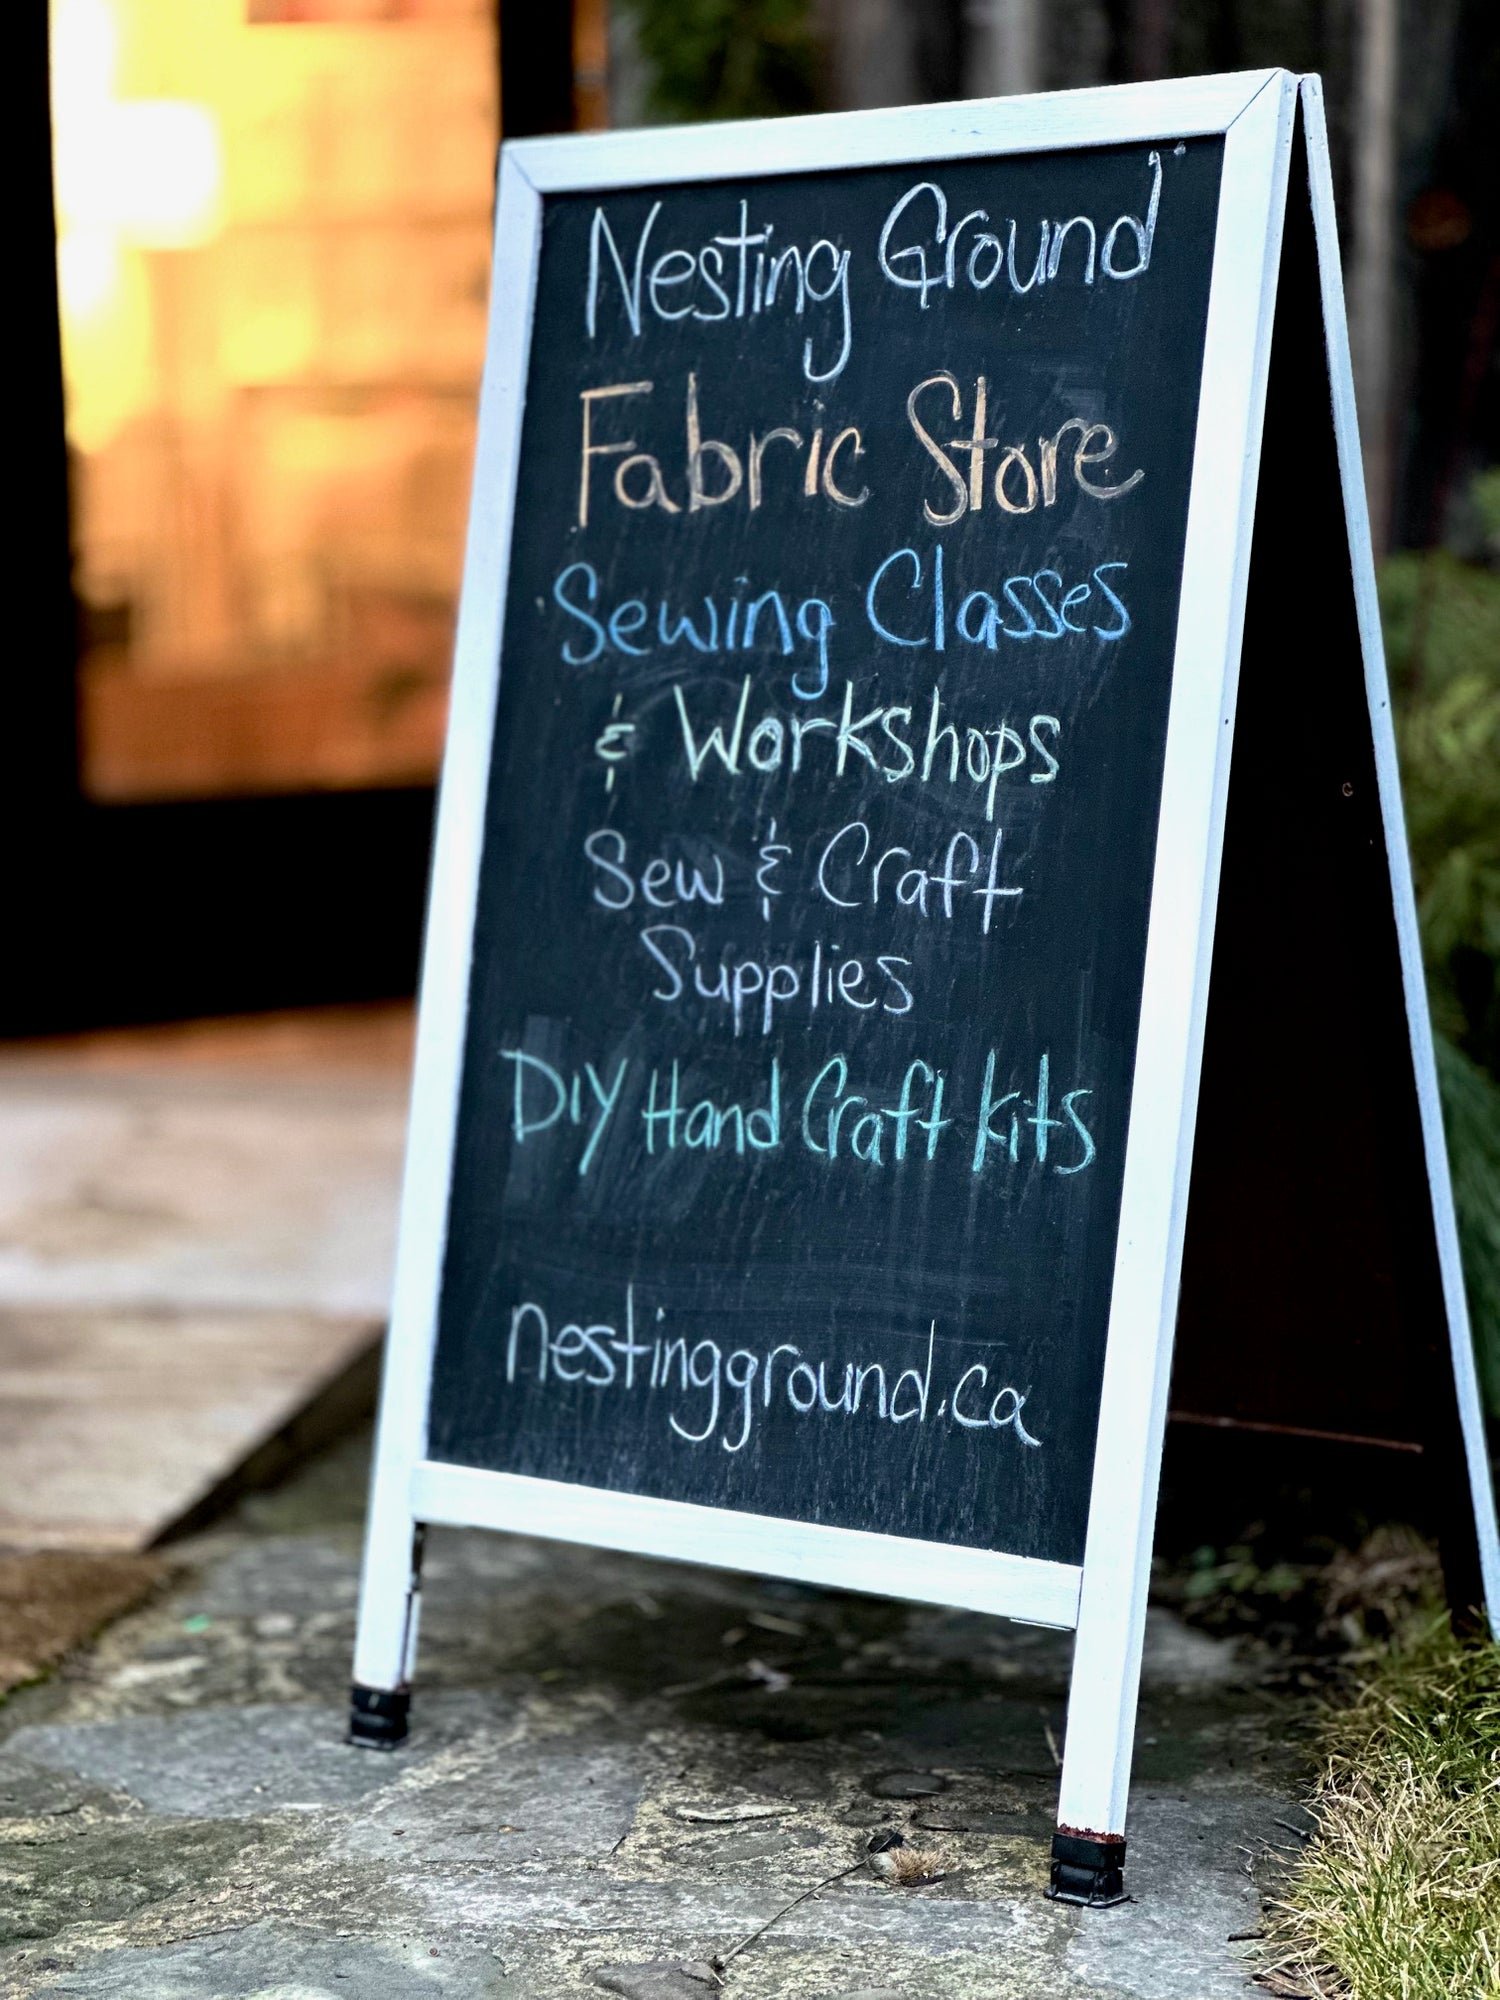 Nesting Ground
Fabric Store
Sewing Classes
& Workshops
Sew & Craft
Supplies
DIY Hand Craft Kits
nestingground.ca